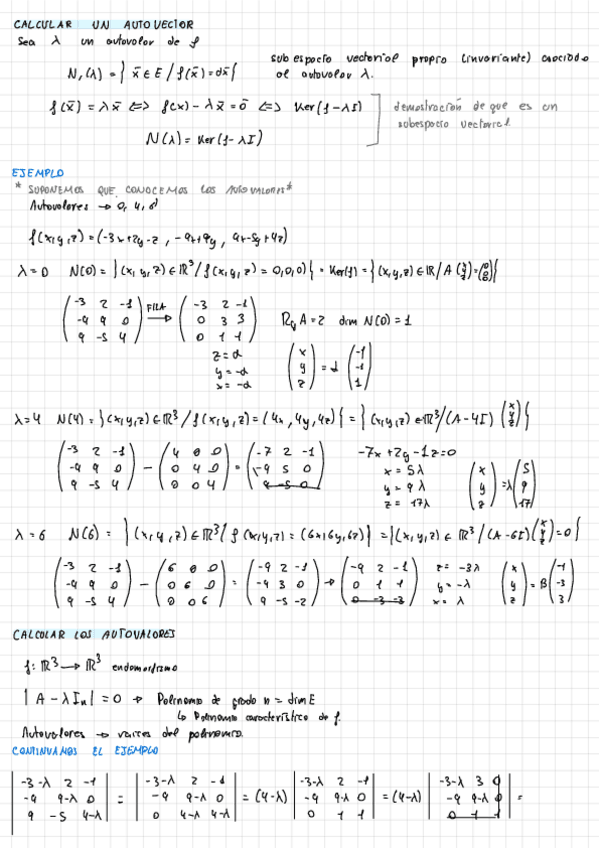 CALCULAR UN AUTOVECTOR
Sea λ un autovalor de f
N₁(λ) = { x̄ ∈ E / f(x̄) = αx̄ { subespacio vectorial propio (invariante) asociado al autovalor λ.
f(x̄) = λx̄ <=> f(x) - λx̄ = ō <=> Ker(f-λI)
demostración de que es un subespacio vectorial
N(λ) = Ker(f-λI)
EJEMPLO
* SUPONEMOS QUE CONOCEMOS LOS AUTOVALORES *
Autovalores → 0, 4, 6
f(x,y,z) = (-3x+2y-z, -9x+9y, 9x-5y+4z)
λ=0 N(0) = {(x,y,z) ∈ ℝ³ / f(x,y,z) = 0,0,0){ = Ker(f) = {(x,y,z) ∈ ℝ / A (x y z) = (0 0 0){
(-3 2 -1 / -9 9 0 / 9 -5 4) FILA → (-3 2 -1 / 0 3 3 / 0 1 1) Rg A = 2 dim N(0) = 1
z = α
y = -α
x = -α
(x y z) = α (-1 -1 1)
λ=4 N(4) = {(x,y,z) ∈ ℝ³ / f(x,y,z) = (4x, 4y, 4z){ = {(x,y,z) ∈ ℝ³ / (A-4I) (x y z) {
(-3 2 -1 / -9 9 0 / 9 -5 4) - (4 0 0 / 0 4 0 / 0 0 4) = (-7 2 -1 / -9 5 0 / 9 -5 0)
-7x+2y-1z=0
x = 5λ
y = 9λ
z = 17λ
(x y z) = λ (5 9 17)
λ=6 N(6) = {(x,y,z) ∈ ℝ³ / f(x,y,z) = (6x, 6y, 6z){ = {(x,y,z) ∈ ℝ³ / (A-6I) (x y z) = 0{
(-3 2 -1 / -9 9 0 / 9 -5 4) - (6 0 0 / 0 6 0 / 0 0 6) = (-9 2 -1 / -9 3 0 / 9 -5 -2) → (-9 2 -1 / 0 1 1 / 0 -3 -3)
z = -3λ
y = -λ
x = λ
(x y z) = β (-1 -3 3)
CALCULAR LOS AUTOVALORES
f: ℝ³ → ℝ³ endomorfismo
|A - λIn| = 0 → Polinomio de grado n = dim E
↳ Polinomio característico de f.
Autovalores → raíces del polinomio.
CONTINUAMOS EL EJEMPLO
|-3-λ 2 -1 / -9 9-λ 0 / 9 -5 4-λ| = |-3-λ 2 -1 / -9 9-λ 0 / 0 4-λ 4-λ| = (4-λ) |-3-λ 2 -1 / -9 9-λ 0 / 0 1 1| = (4-λ) |-3-λ 3 0 / -9 9-λ 0 / 0 1 1| =